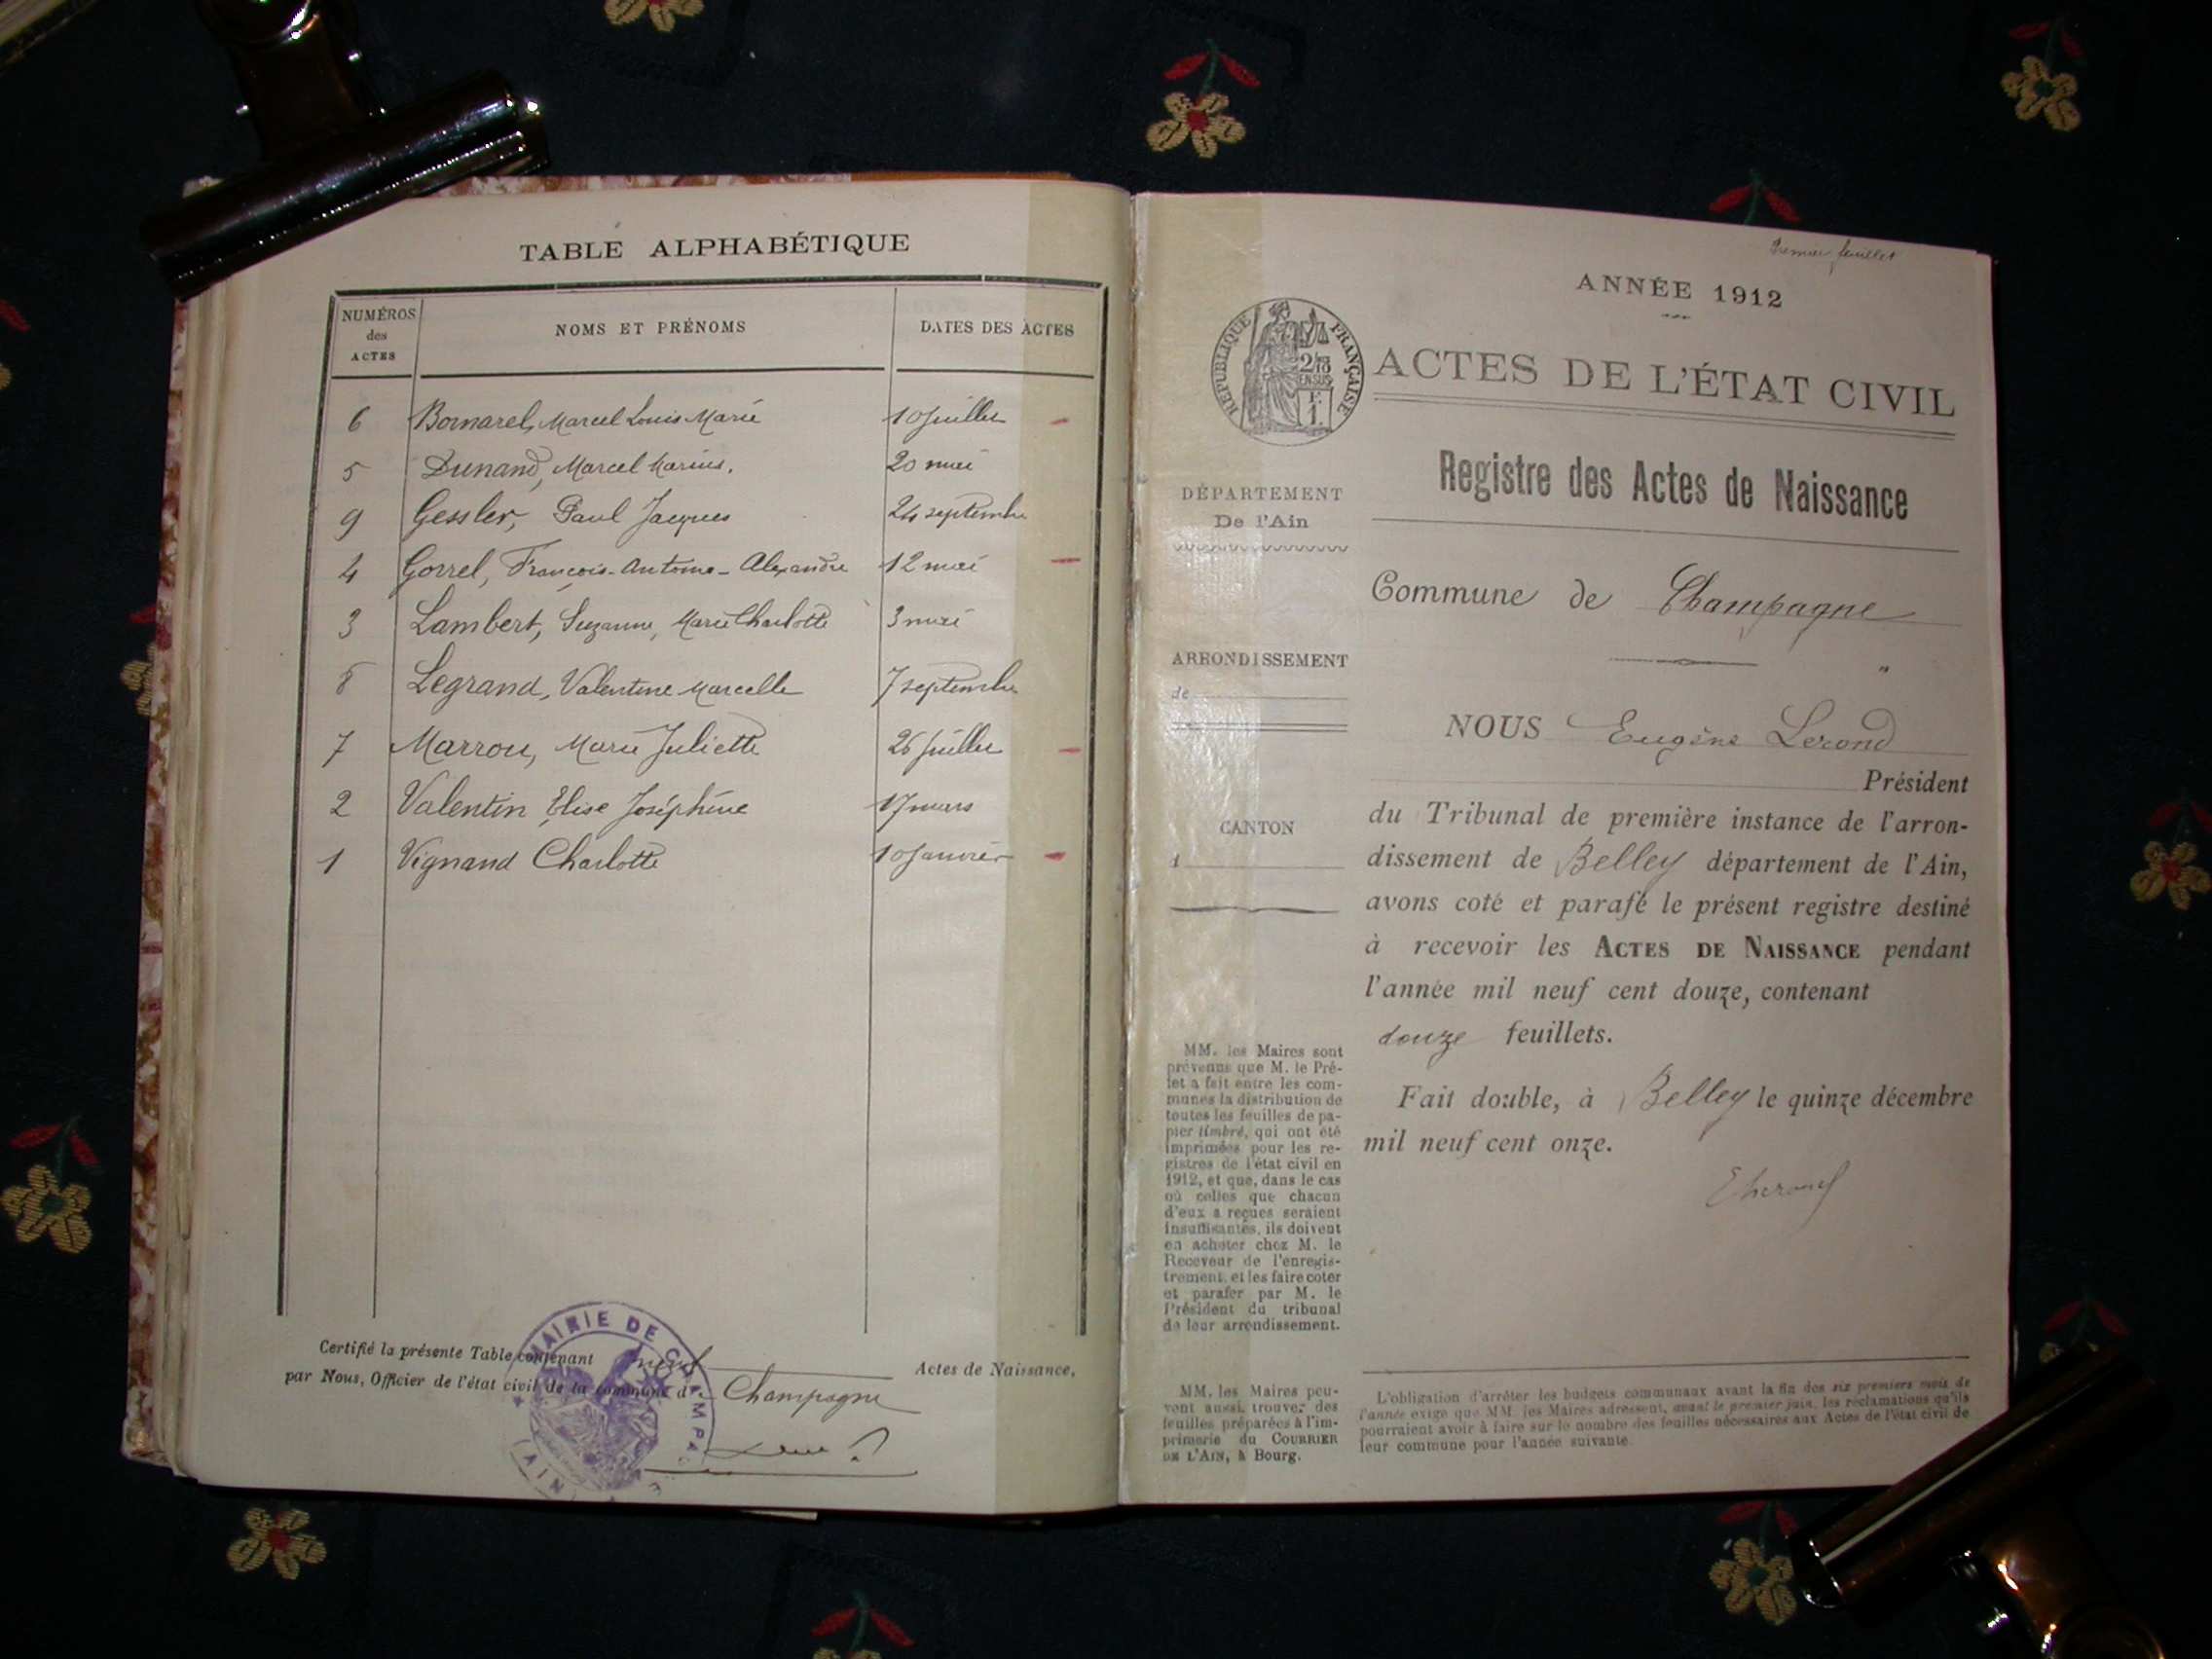 TABLE ALPHABÉTIQUE
NUMÉROS des ACTES NOMS ET PRÉNOMS DATES DES ACTES
6 Bornarel, Marcel Louis Marie 10 Juillet
5 Dunand, Marcel Marius. 20 mai
9 Gessler, Paul Jacques 24 septembre
4 Gorrel, François-Antoine-Alexandre 12 mai
3 Lambert, Suzanne, Marie Charlotte 3 mai
8 Legrand, Valentine Marcelle 7 septembre
7 Marrou, Marie Juliette 26 Juillet
2 Valentin Elise Joséphine 17 mars
1 Vignand Charlotte 10 Janvier
Certifié la présente Table contenant neuf Actes de Naissance,
par Nous, Officier de l'état civil de la commune de Champagne
MAIRIE DE CHAMPA
(AIN)
Premier feuillet
ANNÉE 1912
RÉPUBLIQUE FRANÇAISE
ACTES DE L'ÉTAT CIVIL
Registre des Actes de Naissance
DÉPARTEMENT
De l'Ain
Commune de Champagne
ARRONDISSEMENT
de
NOUS Eugène Lerond
Président
du Tribunal de première instance de l'arron-
CANTON
d
dissement de Belley département de l'Ain,
avons coté et parafé le présent registre destiné
à recevoir les ACTES DE NAISSANCE pendant
l'année mil neuf cent douze, contenant
douze feuillets.
Fait double, à Belley le quinze décembre
mil neuf cent onze.
MM. les Maires sont
prévenus que M. le Pré-
fet a fait entre les com-
munes la distribution de
toutes les feuilles de pa-
pier timbré, qui ont été
imprimées pour les re-
gistres de l'état civil en
1912, et que, dans le cas
où celles que chacun
d'eux a reçues seraient
insuffisantes, ils doivent
en acheter chez M. le
Receveur de l'enregis-
trement, et les faire coter
et parafer par M. le
Président du tribunal
de leur arrondissement.
MM. les Maires peu-
vent aussi trouver des
feuilles préparées à l'im-
primerie du COURRIER
DE L'AIN, à Bourg.
L'obligation d'arrêter les budgets communaux avant la fin des six premiers mois de
l'année exige que MM. les Maires adressent, avant le premier juin, les réclamations qu'ils
pourraient avoir à faire sur le nombre des feuilles nécessaires aux Actes de l'état civil de
leur commune pour l'année suivante.